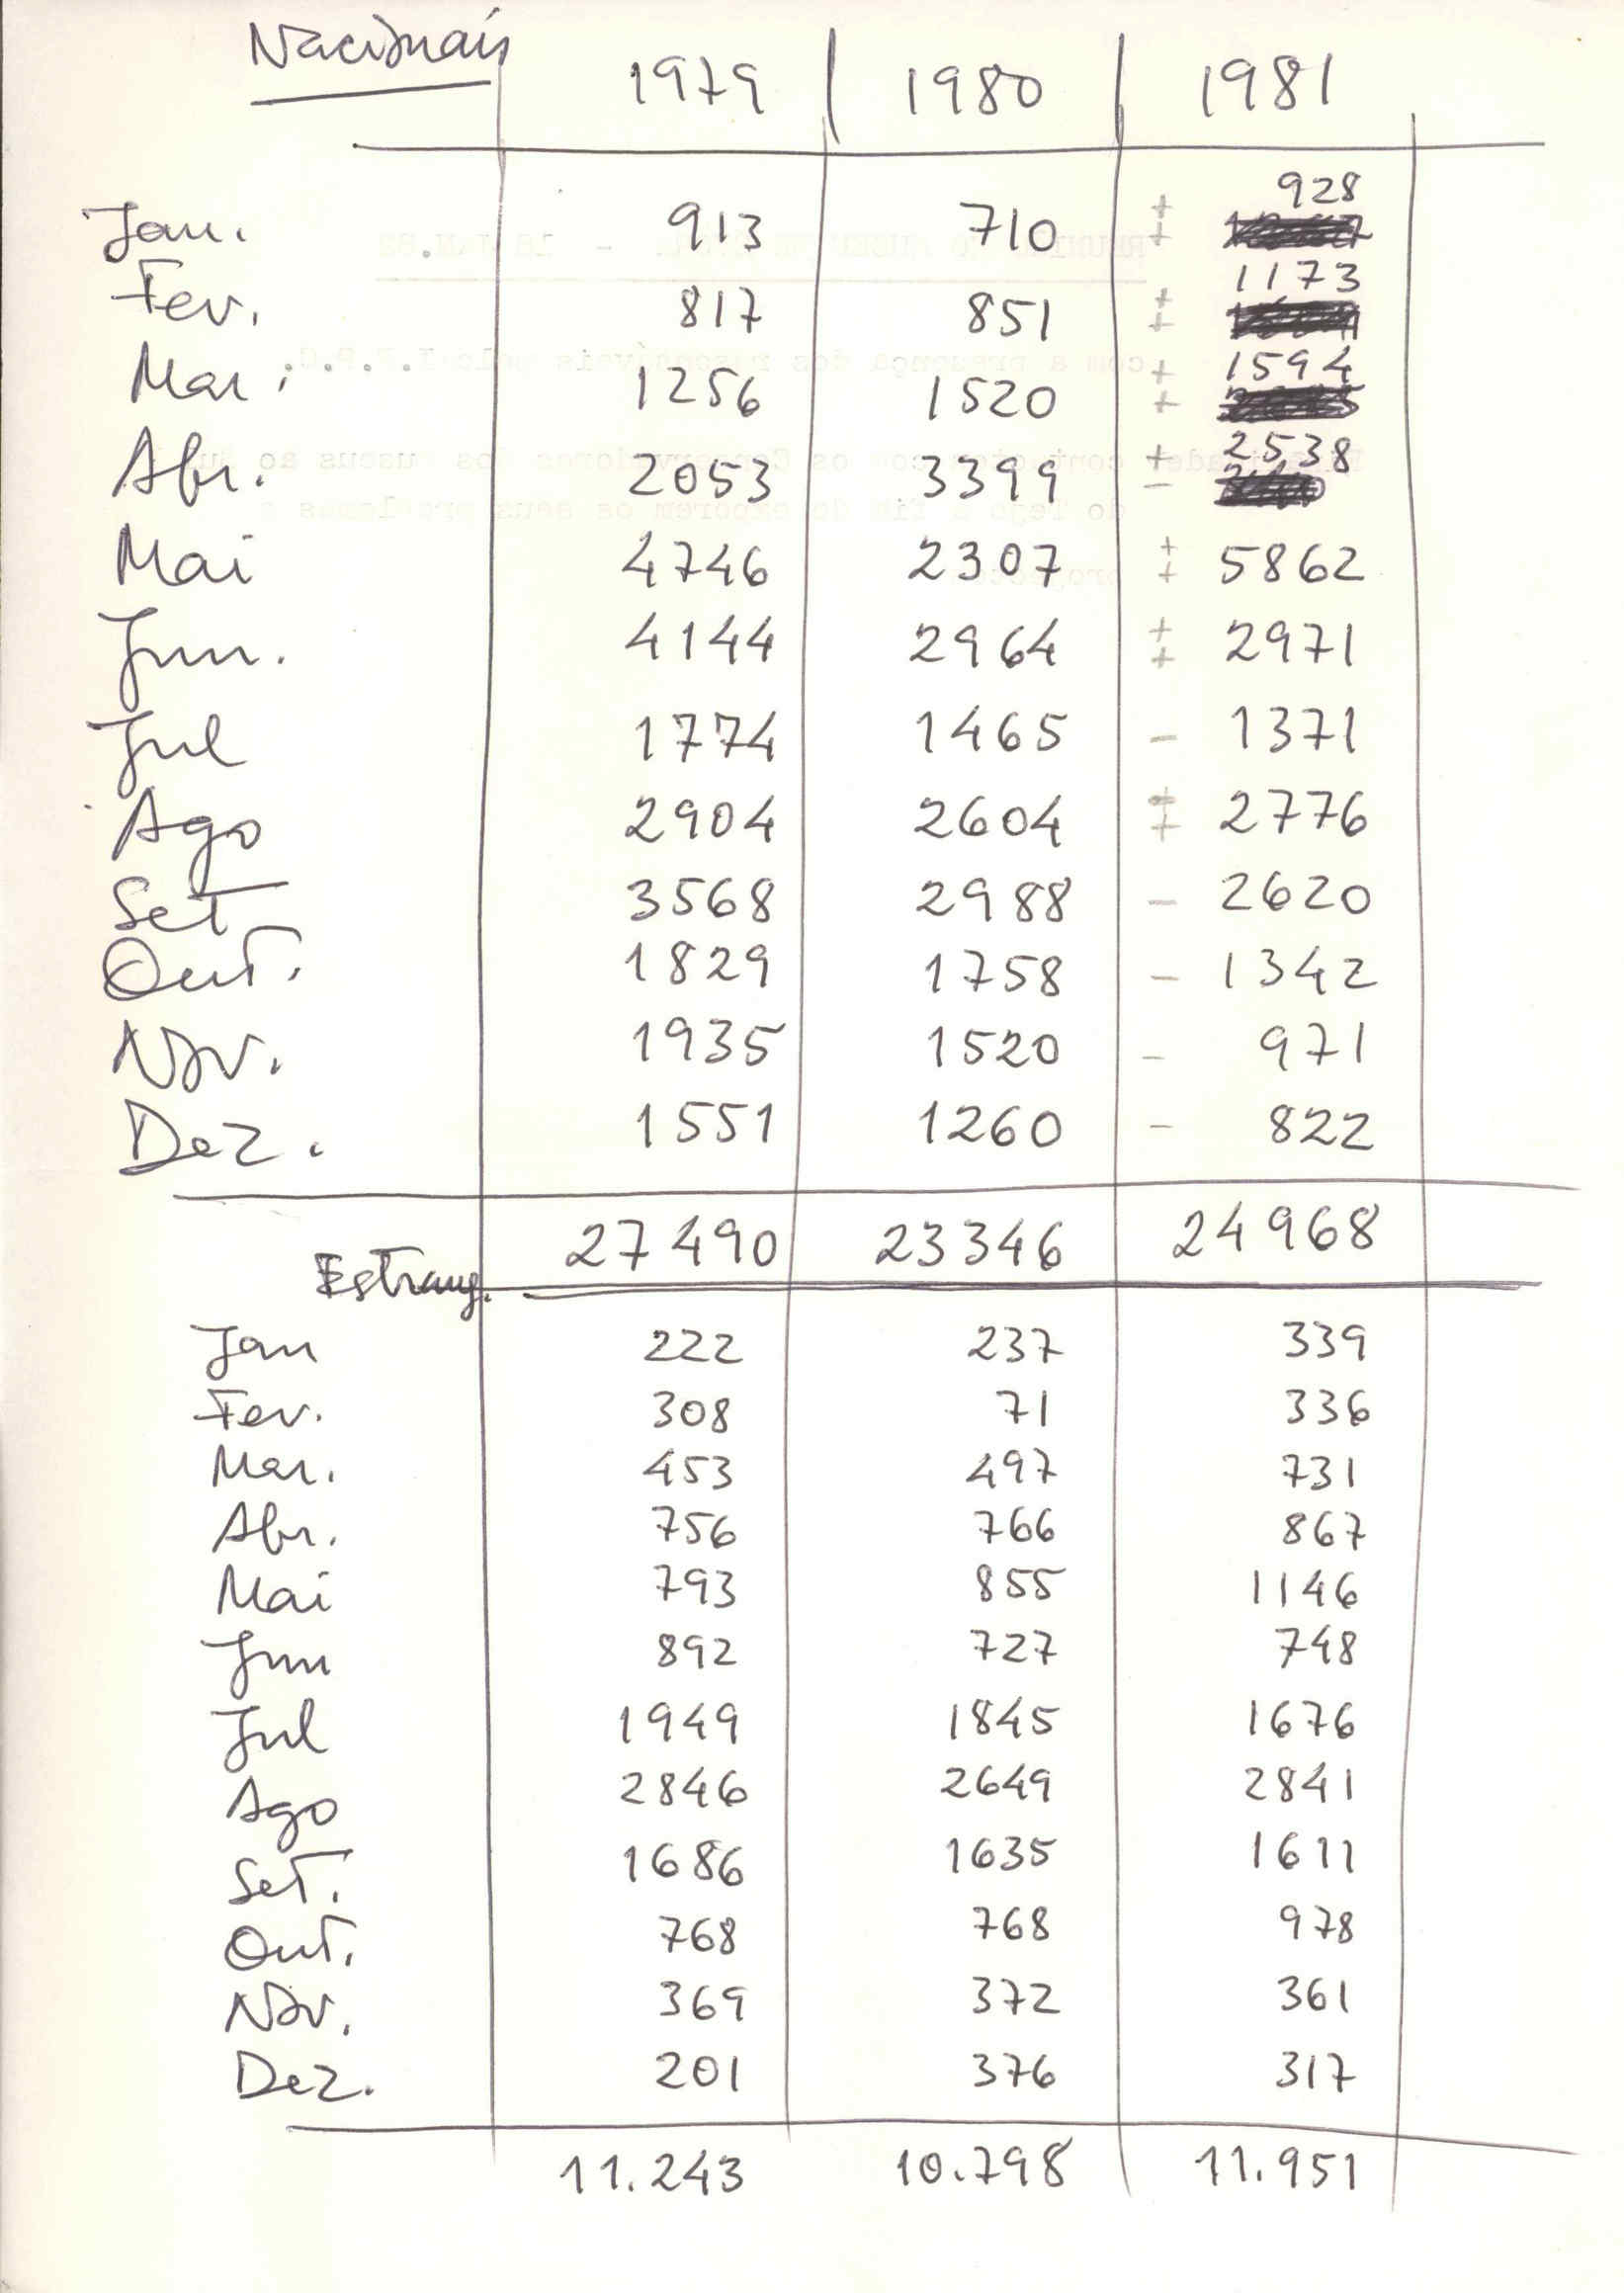 Nacionais 1979 1980 1981
928
Jan. 913 710 + +
1173
Fev. 817 851 + +
1594
Mar. 1256 1520 + +
2538
Abr. 2053 3399 + -
Mai 4746 2307 + + 5862
Jun. 4144 2964 + + 2971
Jul 1774 1465 - 1371
Ago 2904 2604 + + 2776
Set 3568 2988 - 2620
Out. 1829 1758 - 1342
Nov. 1935 1520 - 971
Dez. 1551 1260 - 822
27490 23346 24968
Estrang.
Jan 222 237 339
Fev. 308 71 336
Mar. 453 497 731
Abr. 756 766 867
Mai 793 855 1146
Jun 892 727 748
Jul 1949 1845 1676
Ago 2846 2649 2841
Set. 1686 1635 1611
Out. 768 768 978
Nov. 369 372 361
Dez. 201 376 317
11.243 10.798 11.951